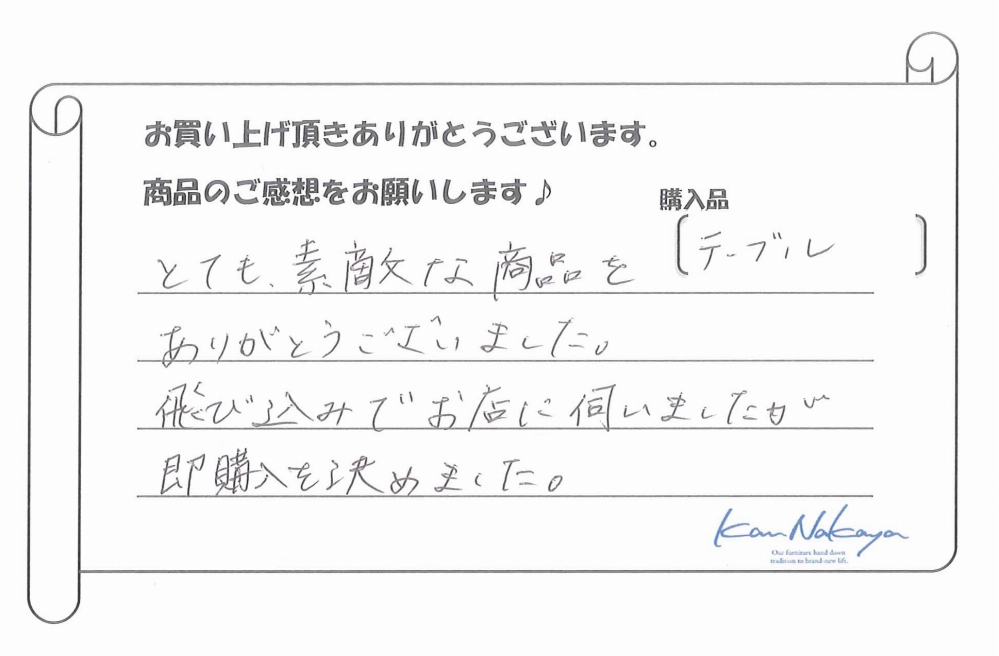 お買い上げ頂きありがとうございます。
商品のご感想をお願いします♪
購入品
テーブル
とても、素敵な商品を
ありがとうございました。
飛び込みでお店に伺いましたが
即購入を決めました。
Kan Nakaya
Our furniture hand down
tradition to brand-new life.